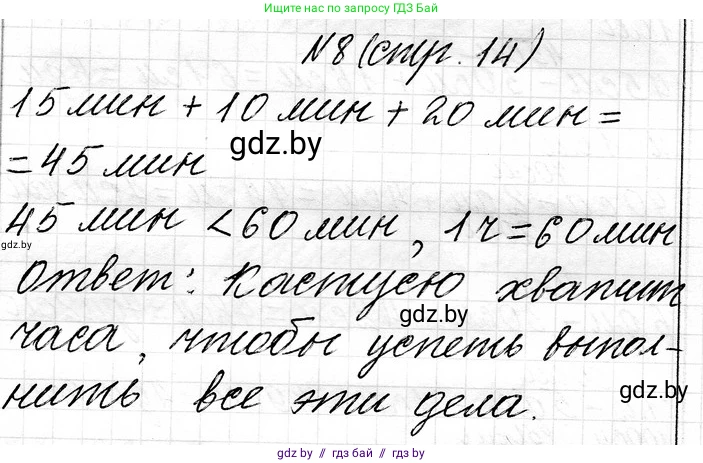 Ищите нас по запросу ГДЗ Бай
N8 (стр. 14)
15 мин + 10 мин + 20 мин =
gdz.by
= 45 мин
45 мин < 60 мин, 1 ч = 60 мин
gdz.by
Ответ: Кастусю хватит
gdz.by
часа, чтобы успеть выпол-
gdz.by
нить все эти дела.
gdz.by // гдз бай // гдз.бу